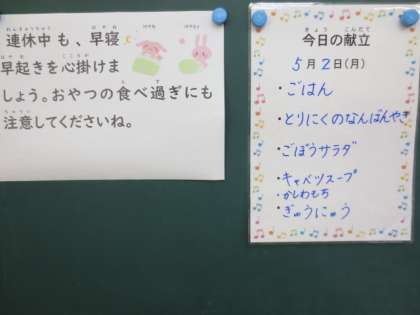 連休中も、早寝
早起きを心掛けま
しょう。おやつの食べ過ぎにも
注意してくださいね。
今日の献立
5月2日(月)
・ごはん
・とりにくのなんばんやき
・ごぼうサラダ
・キャベツスープ
・かしわもち
・ぎゅうにゅう